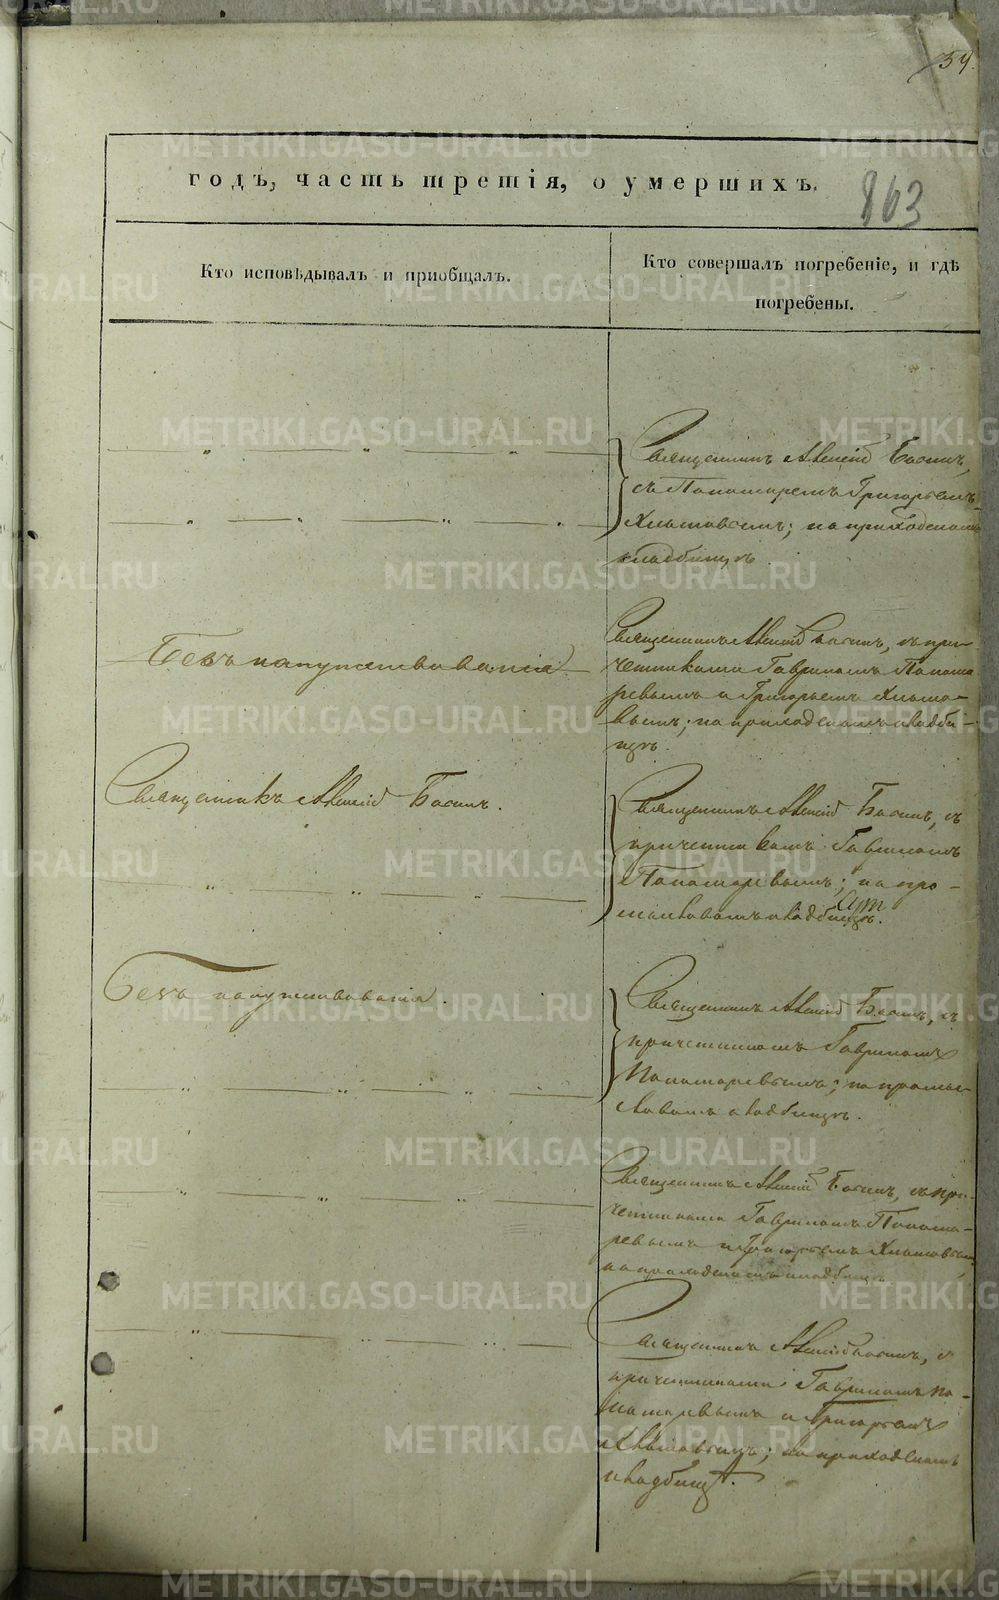 54.
годъ, часть третія, о умершихъ.
863
Кто исповѣдывалъ и приобщалъ.
Кто совершалъ погребеніе, и гдѣ
погребены.
Священникъ Алексій Басинъ,
съ Пономаремъ Григорьемъ
на приходскомъ
кладбищѣ
Безъ напутствованія
Священникъ Алексій Басинъ, съ при-
четниками Гавриломъ Понома
ревымъ и Григорьемъ
вымъ; на приходскомъ кладби-
щѣ.
Священникъ Алексій Басинъ.
Священникъ Алексій Басинъ, съ
причетникомъ Гавриломъ
Пономаревымъ; на про-
кладбищѣ.
Безъ напутствованія.
Священникъ Алексій Басинъ, съ
причетникомъ Гавриломъ
Пономаревымъ; на
кладбищѣ.
Священникъ Алексій Басинъ, съ при-
четниками Гавриломъ Понома-
ревымъ и Григорьемъ
на приходскомъ кладбищѣ
Священникъ Алексій Басинъ, съ
причетниками Гавриломъ По-
номаревымъ и Григорьемъ
на приходскомъ
кладбищѣ.
METRIKI.GASO-URAL.RU